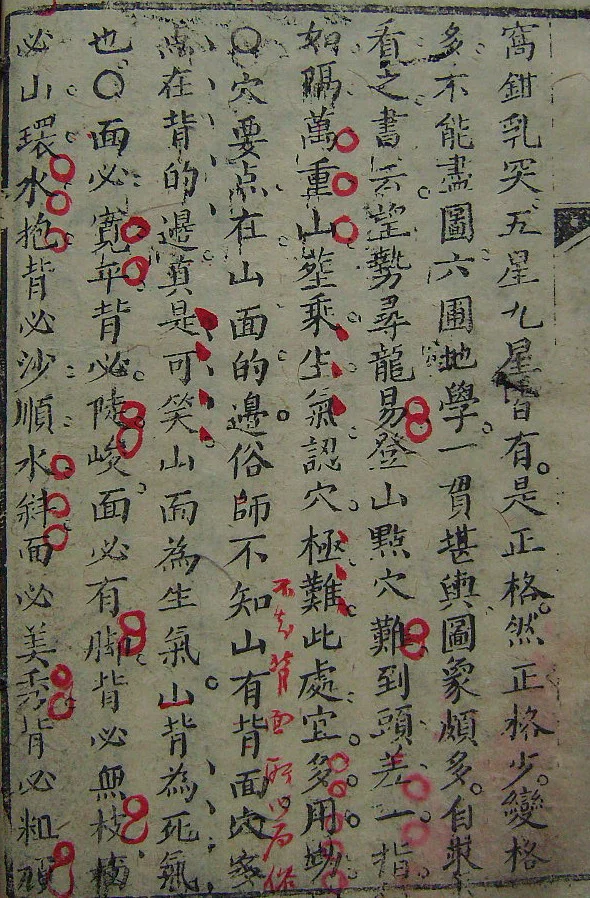 窩鉗乳突五星九星皆有是正格然正格少變格
多不能盡圖六圃地學一貫堪輿圖象頗多自聚
看之書云望勢尋龍易登山點穴難到頭差一指
如隔萬重山葬乘生氣認穴極難此處宜多用功
○穴要点在山面的邊俗師不知山有背面穴
点在背的邊真是可笑山面為生氣山背為死氣
也○面必寬平背必陡峻面必有脚背必無枝
必山環水抱背必沙順水斜面必美秀背必粗頑
不知背面所以為俗